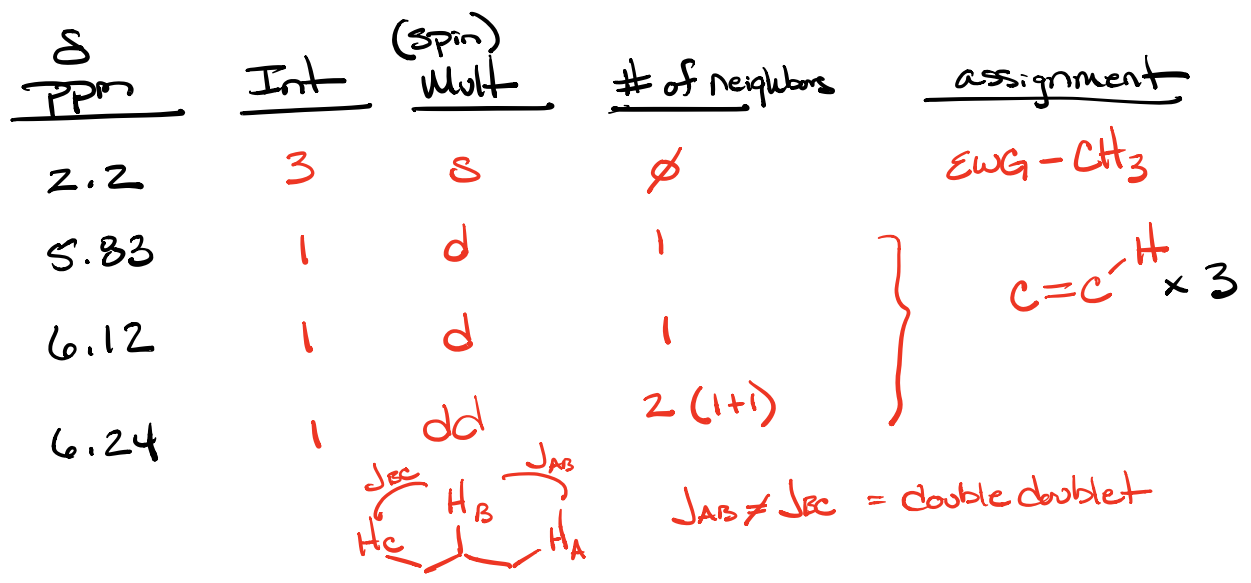 δ ppm Int (spin) Mult # of neighbors assignment
2.2 3 s ∅ EWG – CH₃
5.83 1 d 1
C=C-H × 3
6.12 1 d 1
6.24 1 dd 2 (1+1)
J_BC J_AB
H_B
H_C H_A
J_AB ≠ J_BC = double doublet